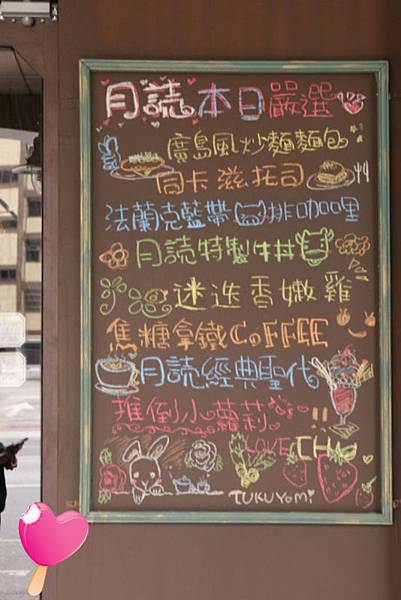 月読本日嚴選
廣島風炒麵麵包
同卡滋托司
法蘭克藍帶排咖哩
月読特製牛丼
迷迭香嫩雞
焦糖拿鐵COFFEE
月読經典聖代
推倒小蘿莉!!
LOVE CHU
TUKUYOMI